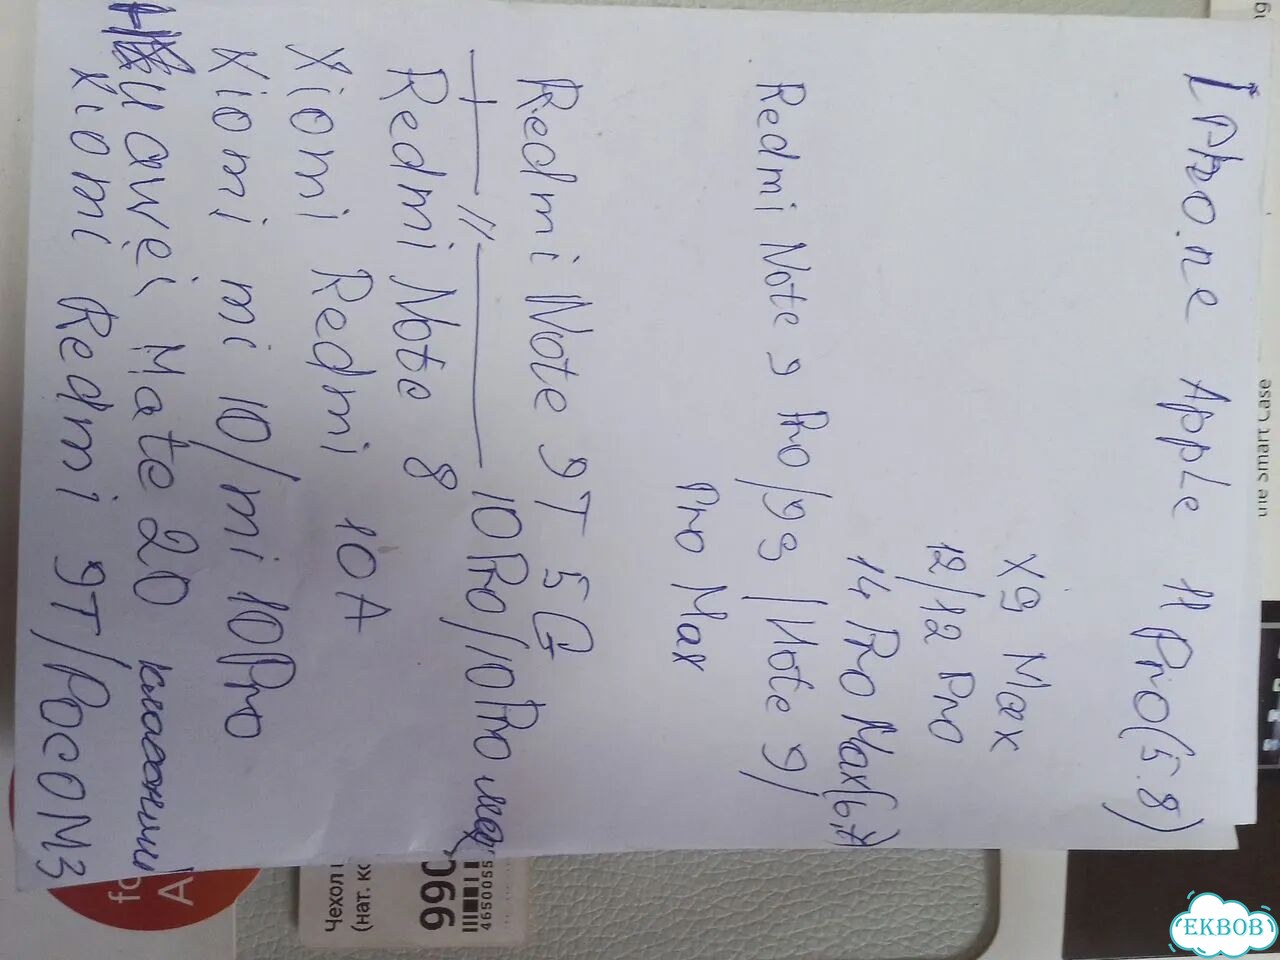 IPhone Apple 11 Pro(5.8)
XS Max
12/12 Pro
14 Pro Max(6,7)
Redmi Note 9 Pro/9S/Note 9/
Pro Max
Redmi Note 9T 5G
—//— 10Pro/10Pro max
Redmi Note 8
Xiomi Redmi 10A
Xiomi mi 10/mi 10Pro
Huawei Mate 20
Xiomi Redmi 9T/PocoM3
the Smart Case
Чехол
(нат. ко
990
4650055
EKBOB